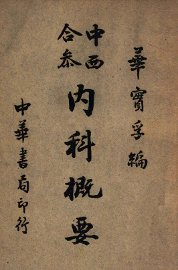 華實孚編
中西
合參
内科概要
中華書局印行